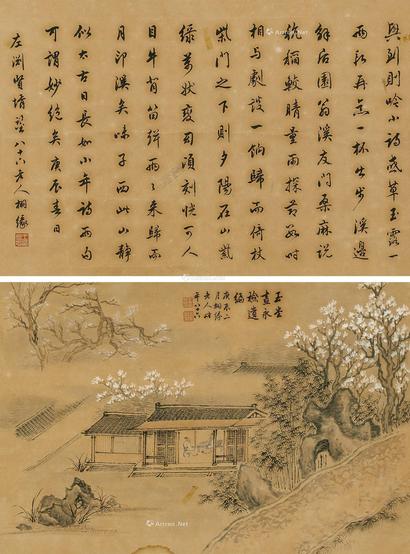 興到則吟小詩或草玉露一
兩段再点一杯出步溪邊
解后園翁溪友門桑麻說
秔稻較晴量雨探節數时
相与劇談一餉歸而倚杖
柴門之下則夕陽在山紫
綠萬狀變幻頃刻恍可人
目牛背笛聲兩〻来歸而
月印溪矣味子西此山靜
似太古日長如小年詩兩句
可謂妙絕矣庚辰春日
左淵賢壻鑒八十六老人桐緣
玉堂
晝永
檢道
編
庚辰二
月桐緣
老人時
年八十六
Artron.Net
Artron.Net